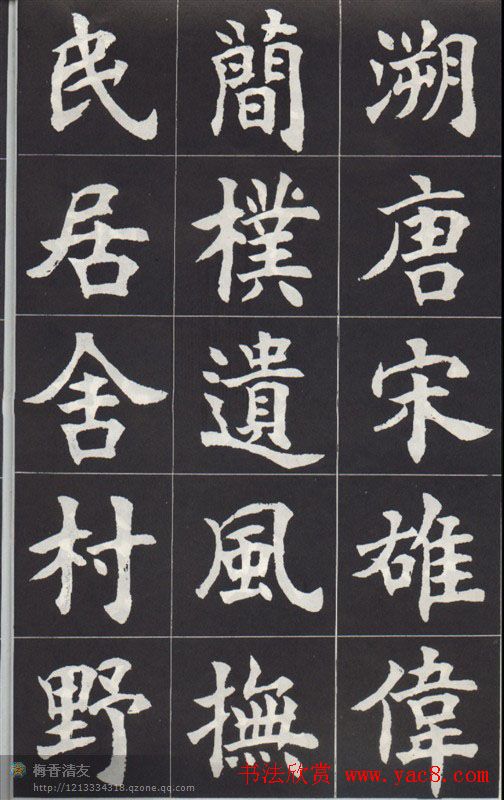 溯唐宋雄偉
簡樸遺風撫
民居舍村野
梅香清友
http://1213334318.qzone.qq.com
书法欣赏
www.yac8.com